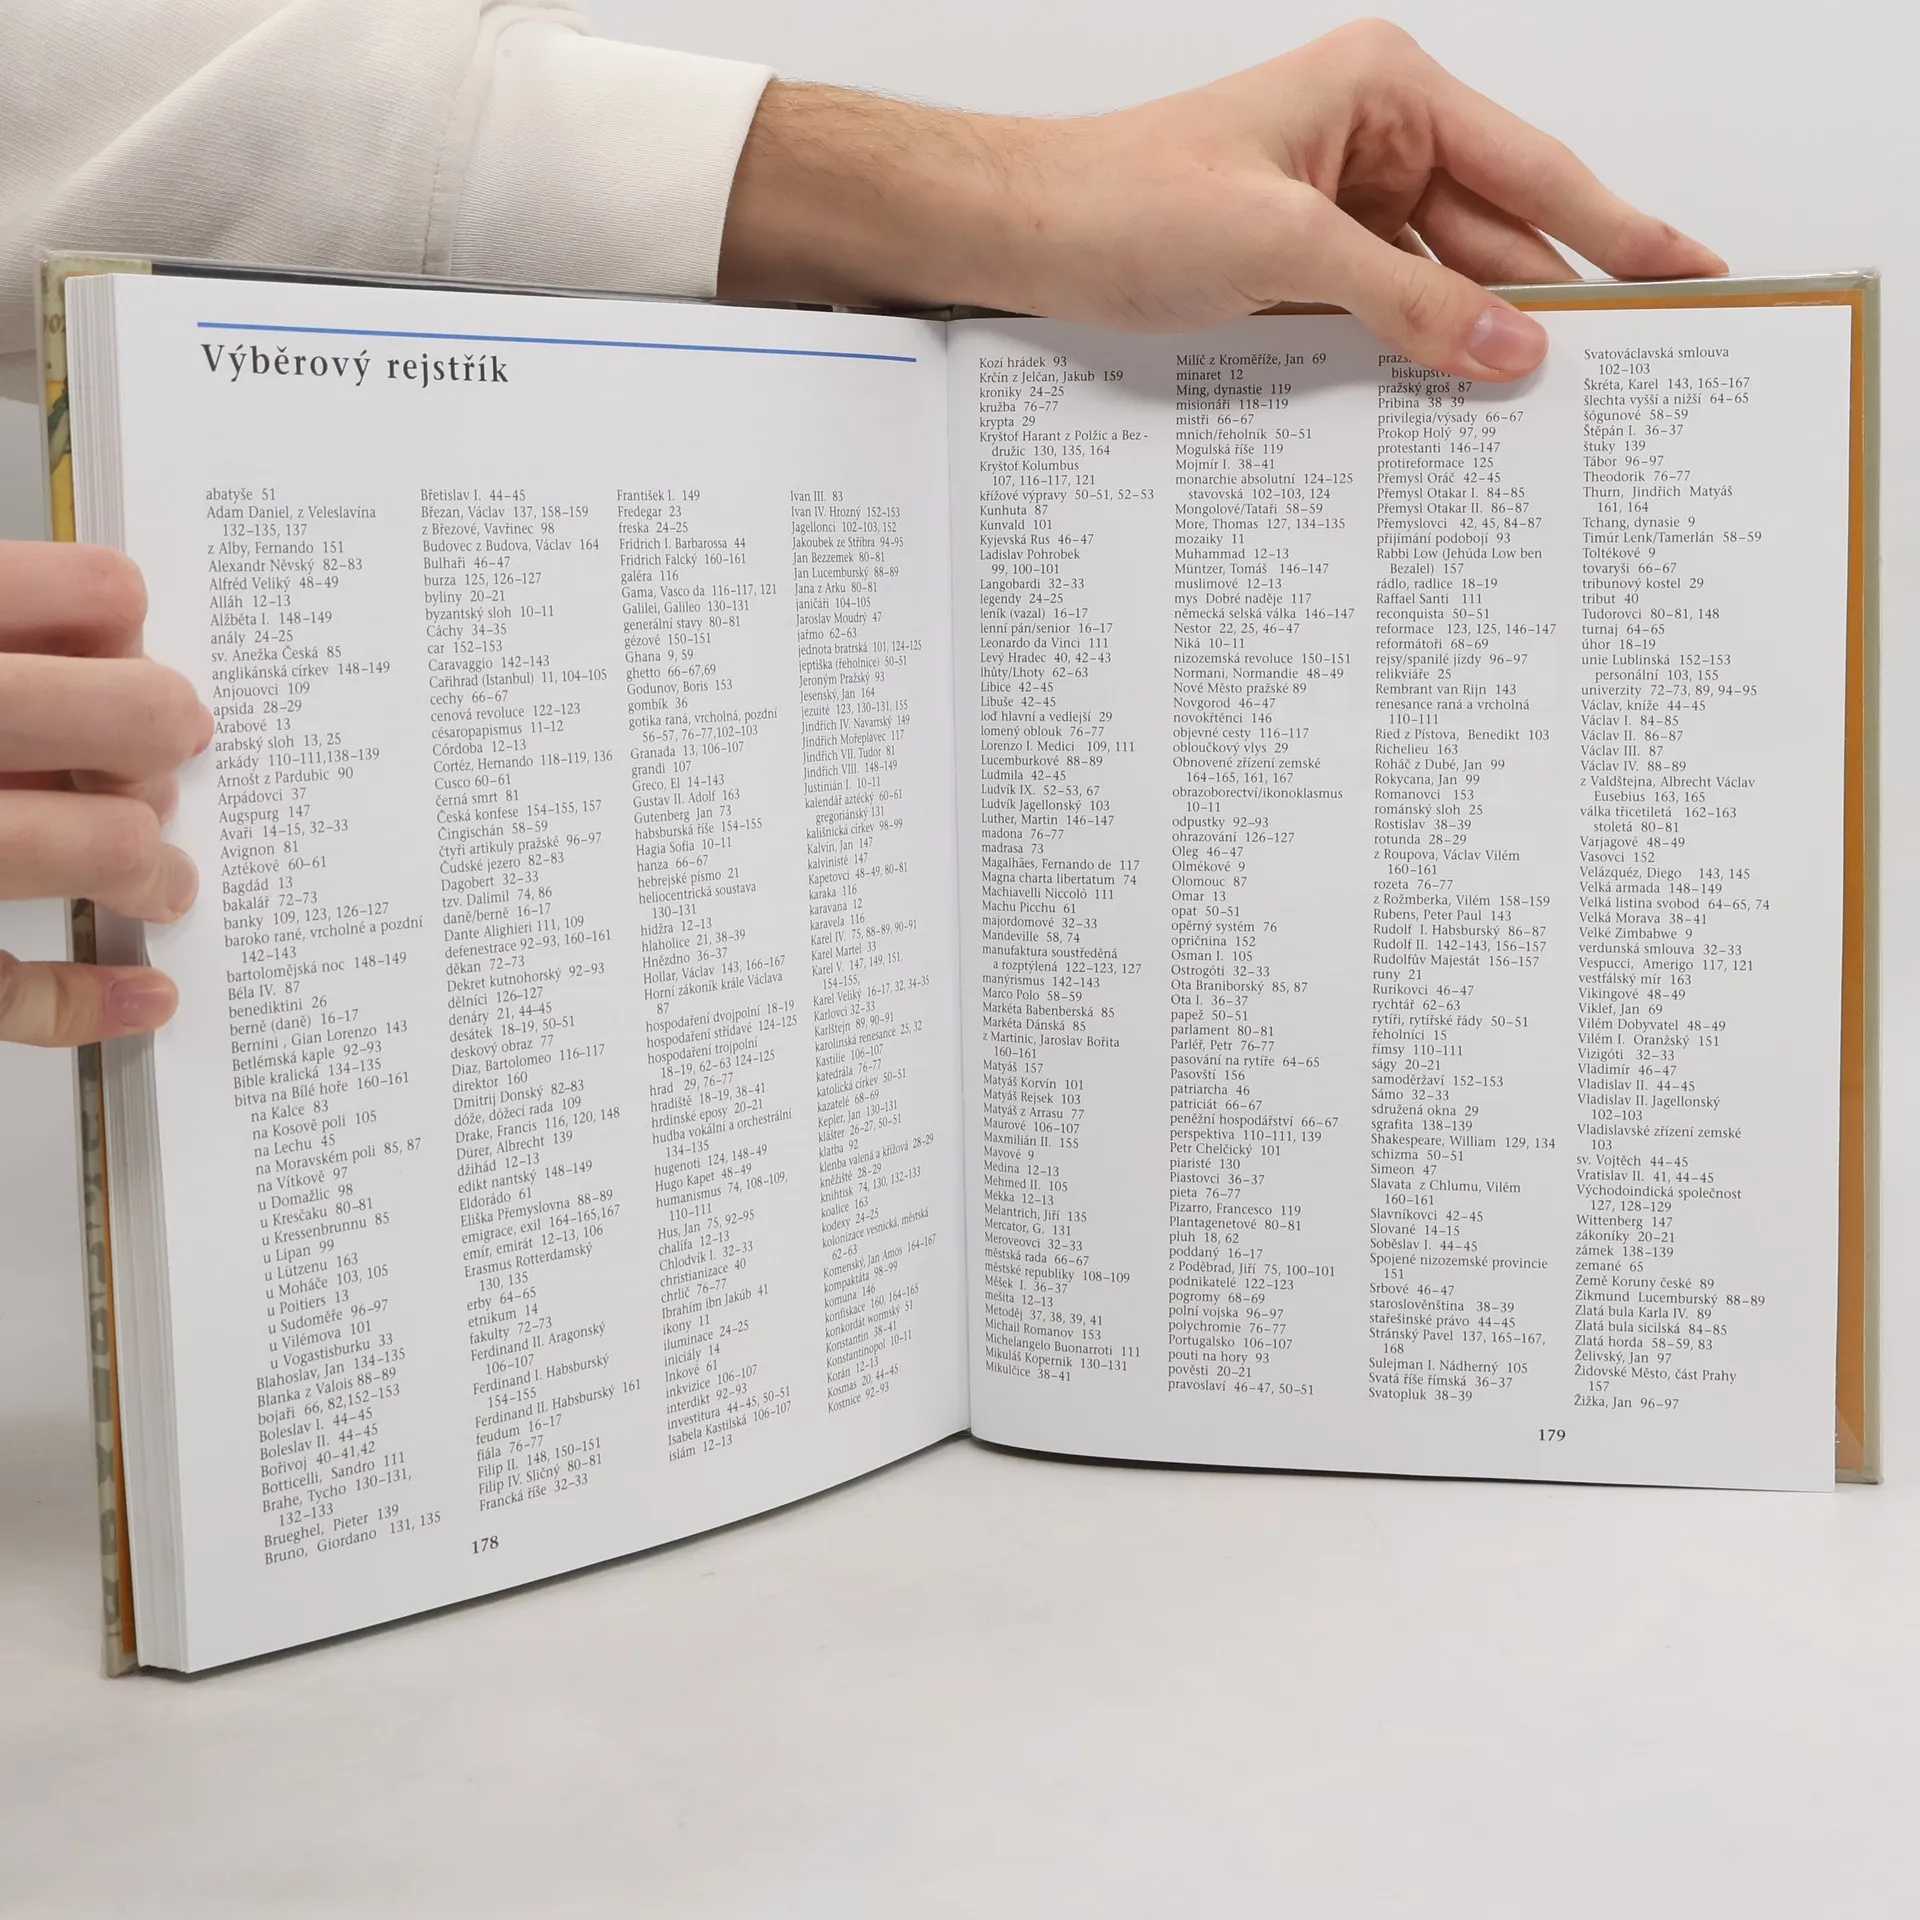 Výběrový rejstřík
abatyše 51
Adam Daniel, z Veleslavína
132–135, 137
z Alby, Fernando 151
Alexandr Něvský 82–83
Alfréd Veliký 48–49
Alláh 12–13
Alžběta I. 148–149
anály 24–25
sv. Anežka Česká 85
anglikánská církev 148–149
Anjouovci 109
apsida 28–29
Arabové 13
arabský sloh 13, 25
arkády 110–111,138–139
Arnošt z Pardubic 90
Arpádovci 37
Augspurg 147
Avaři 14–15, 32–33
Avignon 81
Aztékové 60–61
Bagdád 13
bakalář 72–73
banky 109, 123, 126–127
baroko rané, vrcholné a pozdní
142–143
bartolomějská noc 148–149
Béla IV. 87
benediktini 26
berně (daně) 16–17
Bernini , Gian Lorenzo 143
Betlémská kaple 92–93
Bible kralická 134–135
bitva na Bílé hoře 160–161
na Kalce 83
na Kosově poli 105
na Lechu 45
na Moravském poli 85, 87
na Vítkově 97
u Domažlic 98
u Kresčaku 80–81
u Kressenbrunnu 85
u Lipan 99
u Lützenu 163
u Moháče 103, 105
u Poitiers 13
u Sudoměře 96–97
u Vilémova 101
u Vogastisburku 33
Blahoslav, Jan 134–135
Blanka z Valois 88–89
bojaři 66, 82,152–153
Boleslav I. 44–45
Boleslav II. 44–45
Bořivoj 40–41,42
Botticelli, Sandro 111
Brahe, Tycho 130–131,
132–133
Brueghel, Pieter 139
Bruno, Giordano 131, 135
Břetislav I. 44–45
Březan, Václav 137, 158–159
z Březové, Vavřinec 98
Budovec z Budova, Václav 164
Bulhaři 46–47
burza 125, 126–127
byliny 20–21
byzantský sloh 10–11
Cáchy 34–35
car 152–153
Caravaggio 142–143
Cařihrad (Istanbul) 11, 104–105
cechy 66–67
cenová revoluce 122–123
césaropapismus 11–12
Córdoba 12–13
Cortéz, Hernando 118–119, 136
Cusco 60–61
černá smrt 81
Česká konfese 154–155, 157
Čingischán 58–59
čtyři artikuly pražské 96–97
Čudské jezero 82–83
Dagobert 32–33
tzv. Dalimil 74, 86
daně/berně 16–17
Dante Alighieri 111, 109
defenestrace 92–93, 160–161
děkan 72–73
Dekret kutnohorský 92–93
dělníci 126–127
denáry 21, 44–45
desátek 18–19, 50–51
deskový obraz 77
Diaz, Bartolomeo 116–117
direktor 160
Dmitrij Donský 82–83
dóže, dóžecí rada 109
Drake, Francis 116, 120, 148
Dürer, Albrecht 139
džihád 12–13
edikt nantský 148–149
Eldorádo 61
Eliška Přemyslovna 88–89
emigrace, exil 164–165,167
emír, emirát 12–13, 106
Erasmus Rotterdamský
130, 135
erby 64–65
etnikum 14
fakulty 72–73
Ferdinand II. Aragonský
106–107
Ferdinand I. Habsburský
154–155
Ferdinand II. Habsburský 161
feudum 16–17
fiála 76–77
Filip II. 148, 150–151
Filip IV. Sličný 80–81
Francká říše 32–33
František I. 149
Fredegar 23
freska 24–25
Fridrich I. Barbarossa 44
Fridrich Falcký 160–161
galéra 116
Gama, Vasco da 116–117, 121
Galilei, Galileo 130–131
generální stavy 80–81
gézové 150–151
Ghana 9, 59
ghetto 66–67,69
Godunov, Boris 153
gombík 36
gotika raná, vrcholná, pozdní
56–57, 76–77,102–103
Granada 13, 106–107
grandi 107
Greco, El 14–143
Gustav II. Adolf 163
Gutenberg Jan 73
habsburská říše 154–155
Hagia Sofia 10–11
hanza 66–67
hebrejské písmo 21
heliocentrická soustava
130–131
hidžra 12–13
hlaholice 21, 38–39
Hnězdno 36–37
Hollar, Václav 143, 166–167
Horní zákoník krále Václava
87
hospodaření dvojpolní 18–19
hospodaření střídavé 124–125
hospodaření trojpolní
18–19, 62–63 124–125
hrad 29, 76–77
hradiště 18–19, 38–41
hrdinské eposy 20–21
hudba vokální a orchestrální
134–135
hugenoti 124, 148–49
Hugo Kapet 48–49
humanismus 74, 108–109,
110–111
Hus, Jan 75, 92–95
chalífa 12–13
Chlodvík I. 32–33
christianizace 40
chrlič 76–77
Ibrahím ibn Jakúb 41
ikony 11
iluminace 24–25
iniciály 14
Inkové 61
inkvizice 106–107
interdikt 92–93
investitura 44–45, 50–51
Isabela Kastilská 106–107
islám 12–13
Ivan III. 83
Ivan IV. Hrozný 152–153
Jagellonci 102–103, 152
Jakoubek ze Stříbra 94–95
Jan Bezzemek 80–81
Jan Lucemburský 88–89
Jana z Arku 80–81
janičáři 104–105
Jaroslav Moudrý 47
jařmo 62–63
jednota bratrská 101, 124–125
jeptiška (řeholnice) 50–51
Jeroným Pražský 93
Jesenský, Jan 164
jezuité 123, 130–131, 155
Jindřich IV. Navarrský 149
Jindřich Mořeplavec 117
Jindřich VII. Tudor 81
Jindřich VIII. 148–149
Justinián I. 10–11
kalendář aztécký 60–61
gregoriánský 131
kališnická církev 98–99
Kalvín, Jan 147
kalvinisté 147
Kapetovci 48–49, 80–81
karaka 116
karavana 12
karavela 116
Karel IV. 75, 88–89, 90–91
Karel Martel 33
Karel V. 147, 149, 151,
154–155,
Karel Veliký 16–17, 32, 34–35
Karlovci 32–33
Karlštejn 89, 90–91
karolinská renesance 25, 32
Kastilie 106–107
katedrála 76–77
katolická církev 50–51
kazatelé 68–69
Kepler, Jan 130–131
klášter 26–27, 50–51
klatba 92
klenba valená a křížová 28–29
kněžiště 28–29
knihtisk 74, 130, 132–133
koalice 163
kodexy 24–25
kolonizace vesnická, městská
62–63
Komenský, Jan Amos 164–167
kompaktáta 98–99
komuna 146
konfiskace 160, 164–165
konkordát wormský 51
Konstantin 38–41
Konstantinopol 10–11
Korán 12–13
Kosmas 20, 44–45
Kostnice 92–93
178
Kozí hrádek 93
Krčín z Jelčan, Jakub 159
kroniky 24–25
kružba 76–77
krypta 29
Kryštof Harant z Polžic a Bez -
družic 130, 135, 164
Kryštof Kolumbus
107, 116–117, 121
křížové výpravy 50–51, 52–53
Kunhuta 87
Kunvald 101
Kyjevská Rus 46–47
Ladislav Pohrobek
99, 100–101
Langobardi 32–33
legendy 24–25
leník (vazal) 16–17
lenní pán/senior 16–17
Leonardo da Vinci 111
Levý Hradec 40, 42–43
lhůty/Lhoty 62–63
Libice 42–45
Libuše 42–45
loď hlavní a vedlejší 29
lomený oblouk 76–77
Lorenzo I. Medici 109, 111
Lucemburkové 88–89
Ludmila 42–45
Ludvík IX. 52–53, 67
Ludvík Jagellonský 103
Luther, Martin 146–147
madona 76–77
madrasa 73
Magalhães, Fernando de 117
Magna charta libertatum 74
Machiavelli Niccolò 111
Machu Picchu 61
majordomové 32–33
Mandeville 58, 74
manufaktura soustředěná
a rozptýlená 122–123, 127
manýrismus 142–143
Marco Polo 58–59
Markéta Babenberská 85
Markéta Dánská 85
z Martinic, Jaroslav Bořita
160–161
Matyáš 157
Matyáš Korvín 101
Matyáš Rejsek 103
Matyáš z Arrasu 77
Maurové 106–107
Maxmilián II. 155
Mayové 9
Medina 12–13
Mehmed II. 105
Mekka 12–13
Melantrich, Jiří 135
Mercator, G. 131
Meroveovci 32–33
městská rada 66–67
městské republiky 108–109
Měšek I. 36–37
mešita 12–13
Metoděj 37, 38, 39, 41
Michail Romanov 153
Michelangelo Buonarroti 111
Mikuláš Koperník 130–131
Mikulčice 38–41
Milíč z Kroměříže, Jan 69
minaret 12
Ming, dynastie 119
misionáři 118–119
mistři 66–67
mnich/řeholník 50–51
Mogulská říše 119
Mojmír I. 38–41
monarchie absolutní 124–125
stavovská 102–103, 124
Mongolové/Tataři 58–59
More, Thomas 127, 134–135
mozaiky 11
Muhammad 12–13
Müntzer, Tomáš 146–147
muslimové 12–13
mys Dobré naděje 117
německá selská válka 146–147
Nestor 22, 25, 46–47
Niká 10–11
nizozemská revoluce 150–151
Normani, Normandie 48–49
Nové Město pražské 89
Novgorod 46–47
novokřtěnci 146
objevné cesty 116–117
obloučkový vlys 29
Obnovené zřízení zemské
164–165, 161, 167
obrazoborectví/ikonoklasmus
10–11
odpustky 92–93
ohrazování 126–127
Oleg 46–47
Olmékové 9
Olomouc 87
Omar 13
opat 50–51
opěrný systém 76
opričnina 152
Osman I. 105
Ostrogóti 32–33
Ota Braniborský 85, 87
Ota I. 36–37
papež 50–51
parlament 80–81
Parléř, Petr 76–77
pasování na rytíře 64–65
Pasovští 156
patriarcha 46
patriciát 66–67
peněžní hospodářství 66–67
perspektiva 110–111, 139
Petr Chelčický 101
piaristé 130
Piastovci 36–37
pieta 76–77
Pizarro, Francesco 119
Plantagenetové 80–81
pluh 18, 62
poddaný 16–17
z Poděbrad, Jiří 75, 100–101
podnikatelé 122–123
pogromy 68–69
polní vojska 96–97
polychromie 76–77
Portugalsko 106–107
pouti na hory 93
pověsti 20–21
pravoslaví 46–47, 50–51
pražský groš 87
Pribina 38 39
privilegia/výsady 66–67
Prokop Holý 97, 99
protestanti 146–147
protireformace 125
Přemysl Oráč 42–45
Přemysl Otakar I. 84–85
Přemysl Otakar II. 86–87
Přemyslovci 42, 45, 84–87
přijímání podobojí 93
Rabbi Low (Jehúda Low ben
Bezalel) 157
rádlo, radlice 18–19
Raffael Santi 111
reconquista 50–51
reformace 123, 125, 146–147
reformátoři 68–69
rejsy/spanilé jízdy 96–97
relikviáře 25
Rembrant van Rijn 143
renesance raná a vrcholná
110–111
Ried z Pístova, Benedikt 103
Richelieu 163
Roháč z Dubé, Jan 99
Rokycana, Jan 99
Romanovci 153
románský sloh 25
Rostislav 38–39
rotunda 28–29
z Roupova, Václav Vilém
160–161
rozeta 76–77
z Rožmberka, Vilém 158–159
Rubens, Peter Paul 143
Rudolf I. Habsburský 86–87
Rudolf II. 142–143, 156–157
Rudolfův Majestát 156–157
runy 21
Rurikovci 46–47
rychtář 62–63
rytíři, rytířské řády 50–51
řeholníci 15
římsy 110–111
ságy 20–21
samoděržaví 152–153
Sámo 32–33
sdružená okna 29
sgrafita 138–139
Shakespeare, William 129, 134
schizma 50–51
Simeon 47
Slavata z Chlumu, Vilém
160–161
Slavníkovci 42–45
Slované 14–15
Soběslav I. 44–45
Spojené nizozemské provincie
151
Srbové 46–47
staroslověnština 38–39
stařešinské právo 44–45
Stránský Pavel 137, 165–167,
168
Sulejman I. Nádherný 105
Svatá říše římská 36–37
Svatopluk 38–39
Svatováclavská smlouva
102–103
Škréta, Karel 143, 165–167
šlechta vyšší a nižší 64–65
šógunové 58–59
Štěpán I. 36–37
štuky 139
Tábor 96–97
Theodorik 76–77
Thurn, Jindřich Matyáš
161, 164
Tchang, dynasie 9
Timúr Lenk/Tamerlán 58–59
Toltékové 9
tovaryši 66–67
tribunový kostel 29
tribut 40
Tudorovci 80–81, 148
turnaj 64–65
úhor 18–19
unie Lublinská 152–153
personální 103, 155
univerzity 72–73, 89, 94–95
Václav, kníže 44–45
Václav I. 84–85
Václav II. 86–87
Václav III. 87
Václav IV. 88–89
z Valdštejna, Albrecht Václav
Eusebius 163, 165
válka třicetiletá 162–163
stoletá 80–81
Varjagové 48–49
Vasovci 152
Velázquéz, Diego 143, 145
Velká armada 148–149
Velká listina svobod 64–65, 74
Velká Morava 38–41
Velké Zimbabwe 9
verdunská smlouva 32–33
Vespucci, Amerigo 117, 121
vestfálský mír 163
Vikingové 48–49
Viklef, Jan 69
Vilém Dobyvatel 48–49
Vilém I. Oranžský 151
Vizigóti 32–33
Vladimír 46–47
Vladislav II. 44–45
Vladislav II. Jagellonský
102–103
Vladislavské zřízení zemské
103
sv. Vojtěch 44–45
Vratislav II. 41, 44–45
Východoindická společnost
127, 128–129
Wittenberg 147
zákoníky 20–21
zámek 138–139
zemané 65
Země Koruny české 89
Zikmund Lucemburský 88–89
Zlatá bula Karla IV. 89
Zlatá bula sicilská 84–85
Zlatá horda 58–59, 83
Želivský, Jan 97
Židovské Město, část Prahy
157
Žižka, Jan 96–97
179